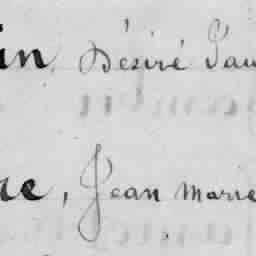 in, Désiré Pau
re, Jean Marie